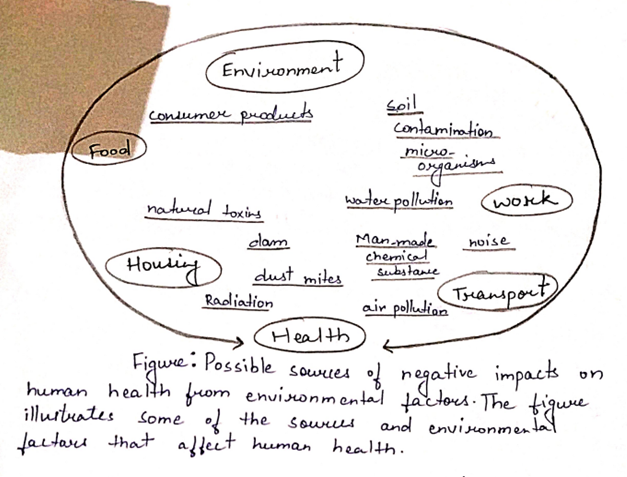 Environment
consumer products
soil
contamination
Food
micro-
organisms
water pollution
work
natural toxins
dam
Man-made
chemical
substance
noise
Housing
dust mites
Transport
Radiation
air pollution
Health
Figure: Possible sources of negative impacts on
human health from environmental factors. The figure
illustrates some of the sources and environmental
factors that affect human health.